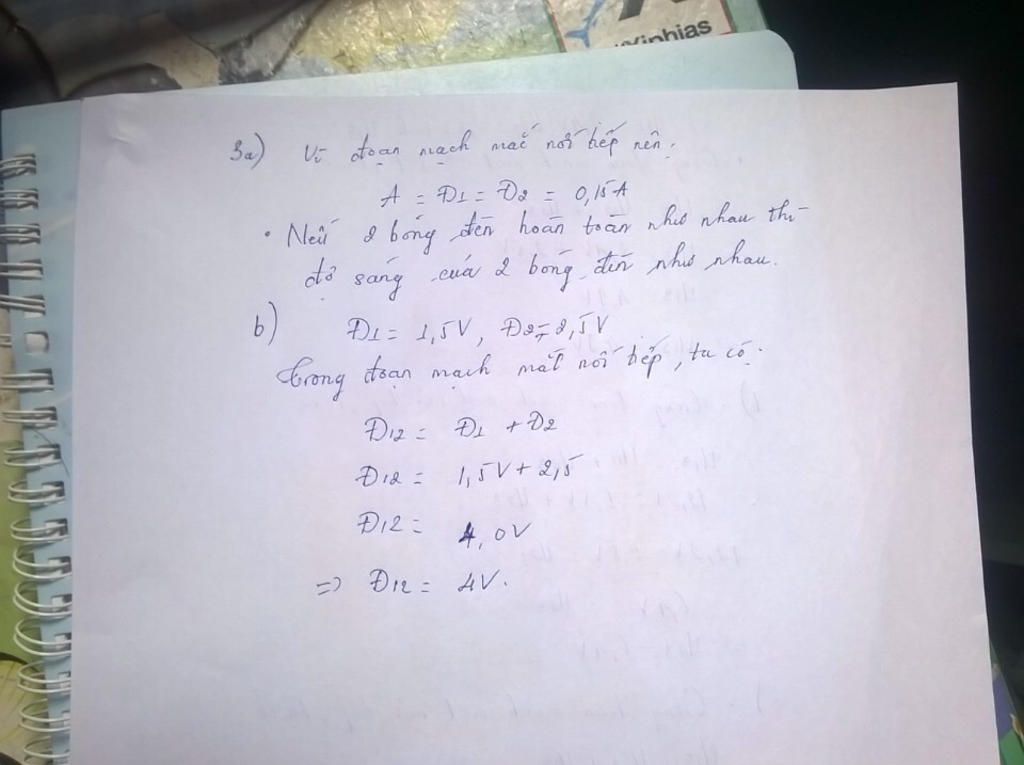 Xiphias
3a) Vì đoạn mạch mắc nối tiếp nên:
A = Đ1 = Đ2 = 0,15A
• Nếu 2 bóng đèn hoàn toàn như nhau thì
độ sáng của 2 bóng đèn như nhau.
b) Đ1 = 1,5V, Đ2 = 2,5V
Trong đoạn mạch mắt nối tiếp, ta có:
Đ12 = Đ1 + Đ2
Đ12 = 1,5V + 2,5
Đ12 = 4,0V
=> Đ12 = 4V.